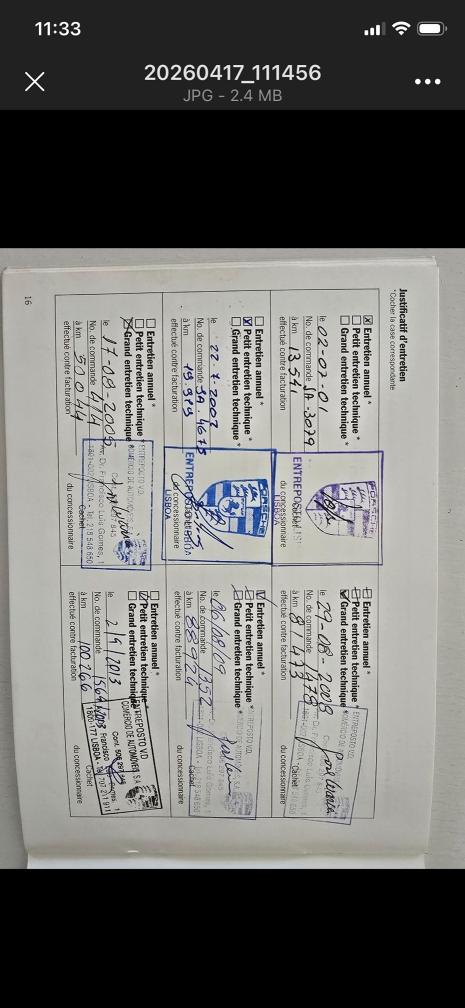 11:33
20260417_111456
JPG - 2.4 MB
Justificatif d'entretien
*Cocher la case correspondante
Entretien annuel *
Petit entretien technique *
Grand entretien technique *
le 02-02-01
No. de commande
à km 13.541
effectué contre facturation
PORSCHE
ENTREPOSTO
LISBOA
du concessionnaire
Entretien annuel *
Petit entretien technique *
Grand entretien technique *
le 22.7.2002
No. de commande
à km
effectué contre facturation
PORSCHE
ENTREPOSTO
LISBOA
du concessionnaire
Entretien annuel *
Petit entretien technique *
Grand entretien technique *
le 17-08-2005
No. de commande
à km 50044
effectué contre facturation
ENTREPOSTO V.D.
COMÉRCIO DE AUTOMÓVEIS
Dr. Francisco Luis Gomes, 1
LISBOA - Tel. 218 548 650
Cachet
du concessionnaire
Entretien annuel *
Petit entretien technique *
Grand entretien technique *
le 29-08-2008
No. de commande
à km 81473
effectué contre facturation
Cachet
du concessionnaire
Entretien annuel *
Petit entretien technique *
Grand entretien technique *
le 06/08/09
No. de commande 1352
à km 88924
effectué contre facturation
Cachet
du concessionnaire
Entretien annuel *
Petit entretien technique *
Grand entretien technique *
le 2/9/2013
No. de commande
à km 100266
effectué contre facturation
ENTREPOSTO V.D.
COMÉRCIO DE AUTOMÓVEIS, S.A.
Francisco
LISBOA - Tel 707 211 911
Cachet
du concessionnaire
16